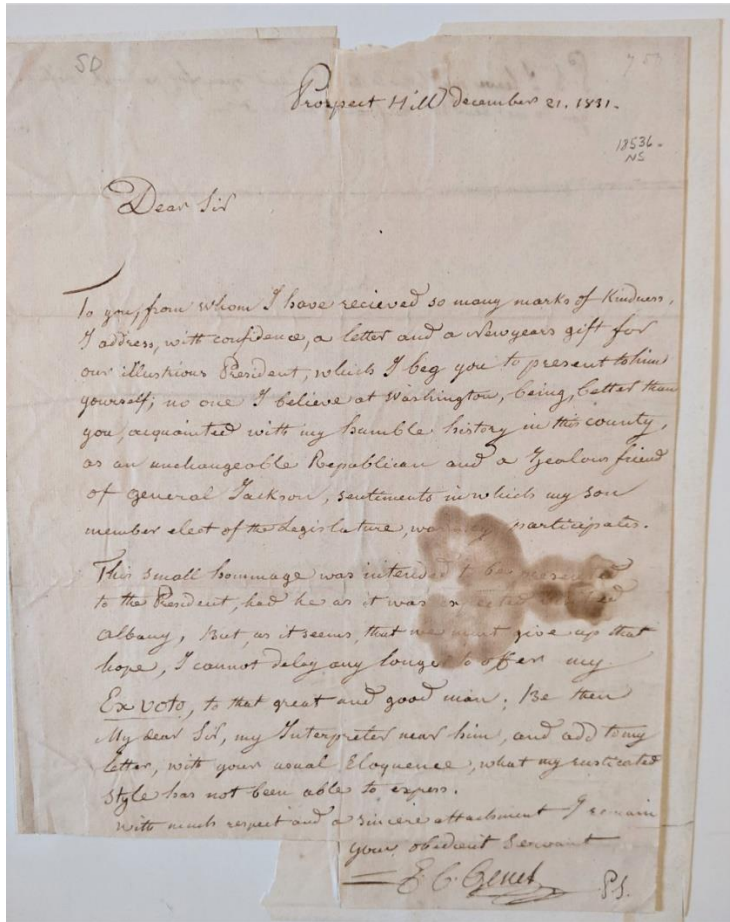 SD
Prospect Hill December 21. 1831.
18536.
NS
Dear Sir
To you, from whom I have recieved so many marks of Kindness,
I address, with confidence, a letter and a New years gift for
our illustrious President, which I beg you to present to him
yourself; no one I believe at Washington, being, better than
you, acquainted with my humble history in this county,
as an unchangeable Republican and a Zealous friend
of general Jackson, sentiments in which my son
member elect of the Legislature, participates.
This small hommage was intended to be
to the President, had he as it was expected
Albany, But, as it seems, that we must give up that
hope, I cannot delay any longer to offer my
Ex voto, to that great and good man; Be then
My dear Sir, my Interpreter near him, and add to my
letter, with your usual Eloquence, what my rusticated
style has not been able to express.
with much respect and a sincere attachment I remain
your obedient Servant
E. C. Genet
P.S.